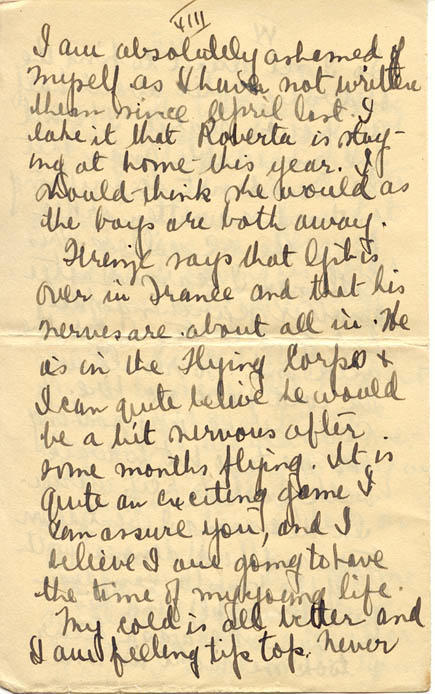 VIII
I am absolutely ashamed of
myself as I have not written
them since April last. I
take it that Roberta is stay-
ing at home this year. I
should think she would as
the boys are both away.
says that is
over in France and that his
nerves are about all in. He
is in the Flying Corps &
I can quite belive he would
be a bit nervous after
some months flying. It is
quite an exciting game I
can assure you, and I
believe I am going to have
the time of my young life.
My cold is all better and
I am feeling tip top. Never